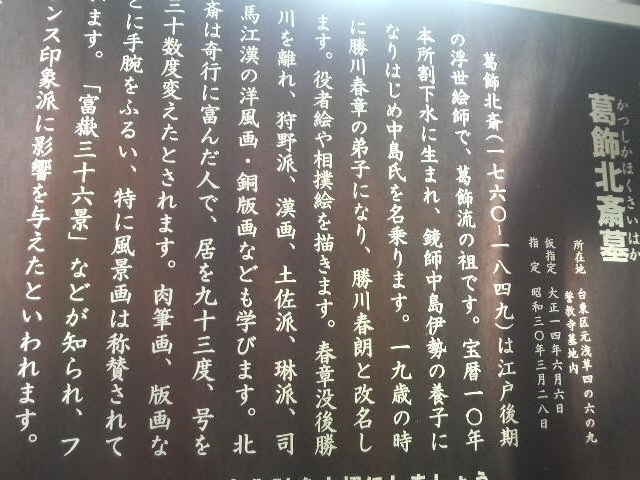 かつしかほくさいはか
葛飾北斎墓
所在地 台東区元浅草四の六の九
誓教寺墓地内
仮指定 大正一四年六月六日
指定 昭和三〇年三月二八日
葛飾北斎(一七六〇~一八四九)は江戸後期
の浮世絵師で、葛飾流の祖です。宝暦一〇年
本所割下水に生まれ、鏡師中島伊勢の養子に
なりはじめ中島氏を名乗ります。一九歳の時
に勝川春章の弟子になり、勝川春朗と改名し
ます。役者絵や相撲絵を描きます。春章没後勝
川を離れ、狩野派、漢画、土佐派、琳派、司
馬江漢の洋風画・銅版画なども学びます。北
斎は奇行に富んだ人で、居を九十三度、号を
三十数度変えたとされます。肉筆画、版画な
どに手腕をふるい、特に風景画は称賛されて
います。「富嶽三十六景」などが知られ、フ
ンス印象派に影響を与えたといわれます。